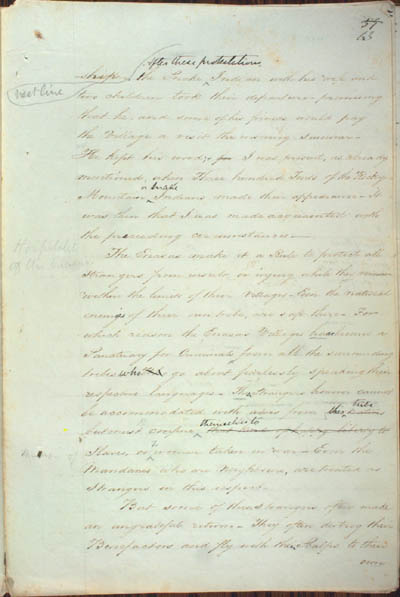 59
63
After these protestations
ship, the Snake Indian with his wife and
next line
two children took their departure promising
that he and some of his friends would pay
the Village a visit the ensuing Summer.
He kept his word; for I was present, as already
mentioned, when Three hundred Tents of the Rocky
or Snake
Mountain Indians made their appearance. It
was then that I was made acquainted with
the preceeding circumstances.
Hospitality
of the
The Enasas make it a Rule to protect all
Strangers from insult, or injury while they remain
within the limits of their Villages. Even the natural
enemies of their own tribe, are safe there. For
which reason the Enasas Villages has become a
Sanctuary for Criminals from all the surrounding
tribes who go about fearlessly speaking their
respective languages. The strangers however cannot
be accommodated with wives from this tribe
themselves to
but must confine that kind of
Slaves, or women taken in war. Even the
Mandanes who are Neighbours, are treated as
Strangers in this respect.
But some of these strangers often made
an ungrateful return. They often destroy their
Benefactors and fly with their Scalps to their
own